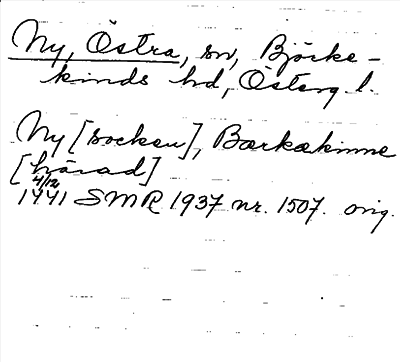 Ny, Östra, sn, Björke-
kinds hd, Österg. l.
Ny [socken], Bærkækinne
[härad]
4/12
1441 SMR 1937 nr. 1507. orig.